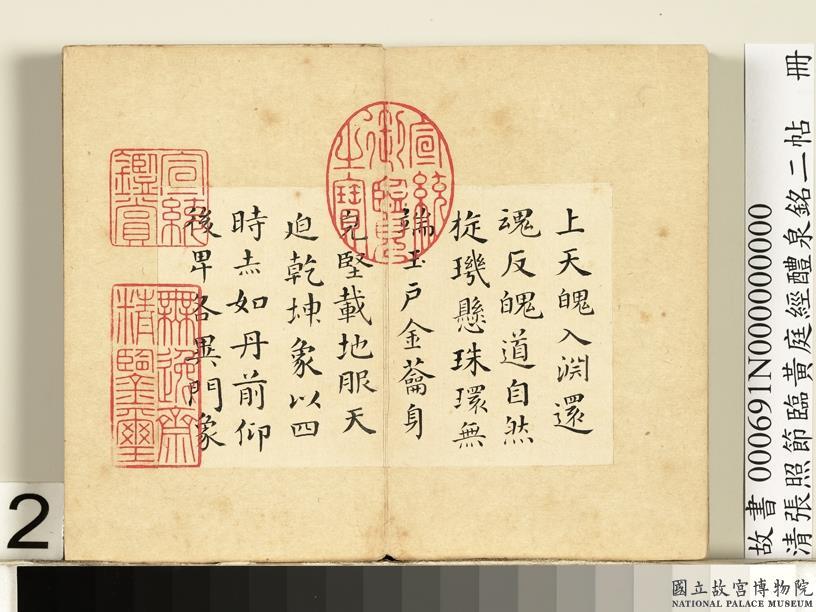 故書 000691N000000000
清張照節臨黃庭經醴泉銘二帖 冊
上天魄入淵還
魂反魄道自然
旋璣懸珠環無
端玉戶金蘥身
完堅載地服天
迫乾坤象以四
時赤如丹前仰
後卑各異門象
宣統御覽之寶
宣統鑑賞
無逸齋精鑒璽
2
國立故宮博物院
NATIONAL PALACE MUSEUM